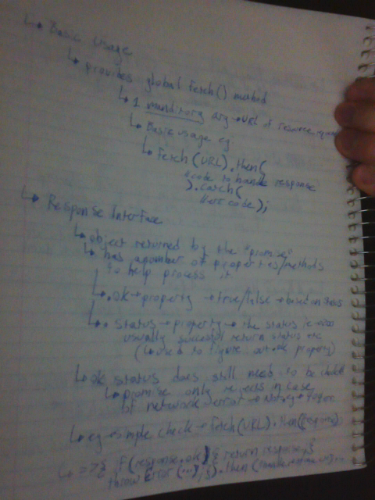 ↳ Basic usage
↳ provides global fetch() method
↳ 1 mandatory arg → URL of resource
↳ Basic usage eg
↳ fetch(URL).then(
code to handle response
).catch(
error code);
↳ Response Interface
↳ object returned by the "promise"
↳ has a number of properties/methods
to help process it
↳ .ok → property → true/false → based on status
↳ .status → property → the status
usually successful return status etc
(used to figure property)
↳ ok status does still need to be
↳ promise only rejects in case
of network error →
↳ eg → simple check → fetch(URL).then((response)
=> { if (response.ok) { return response; }
throw Error(...); }).then(